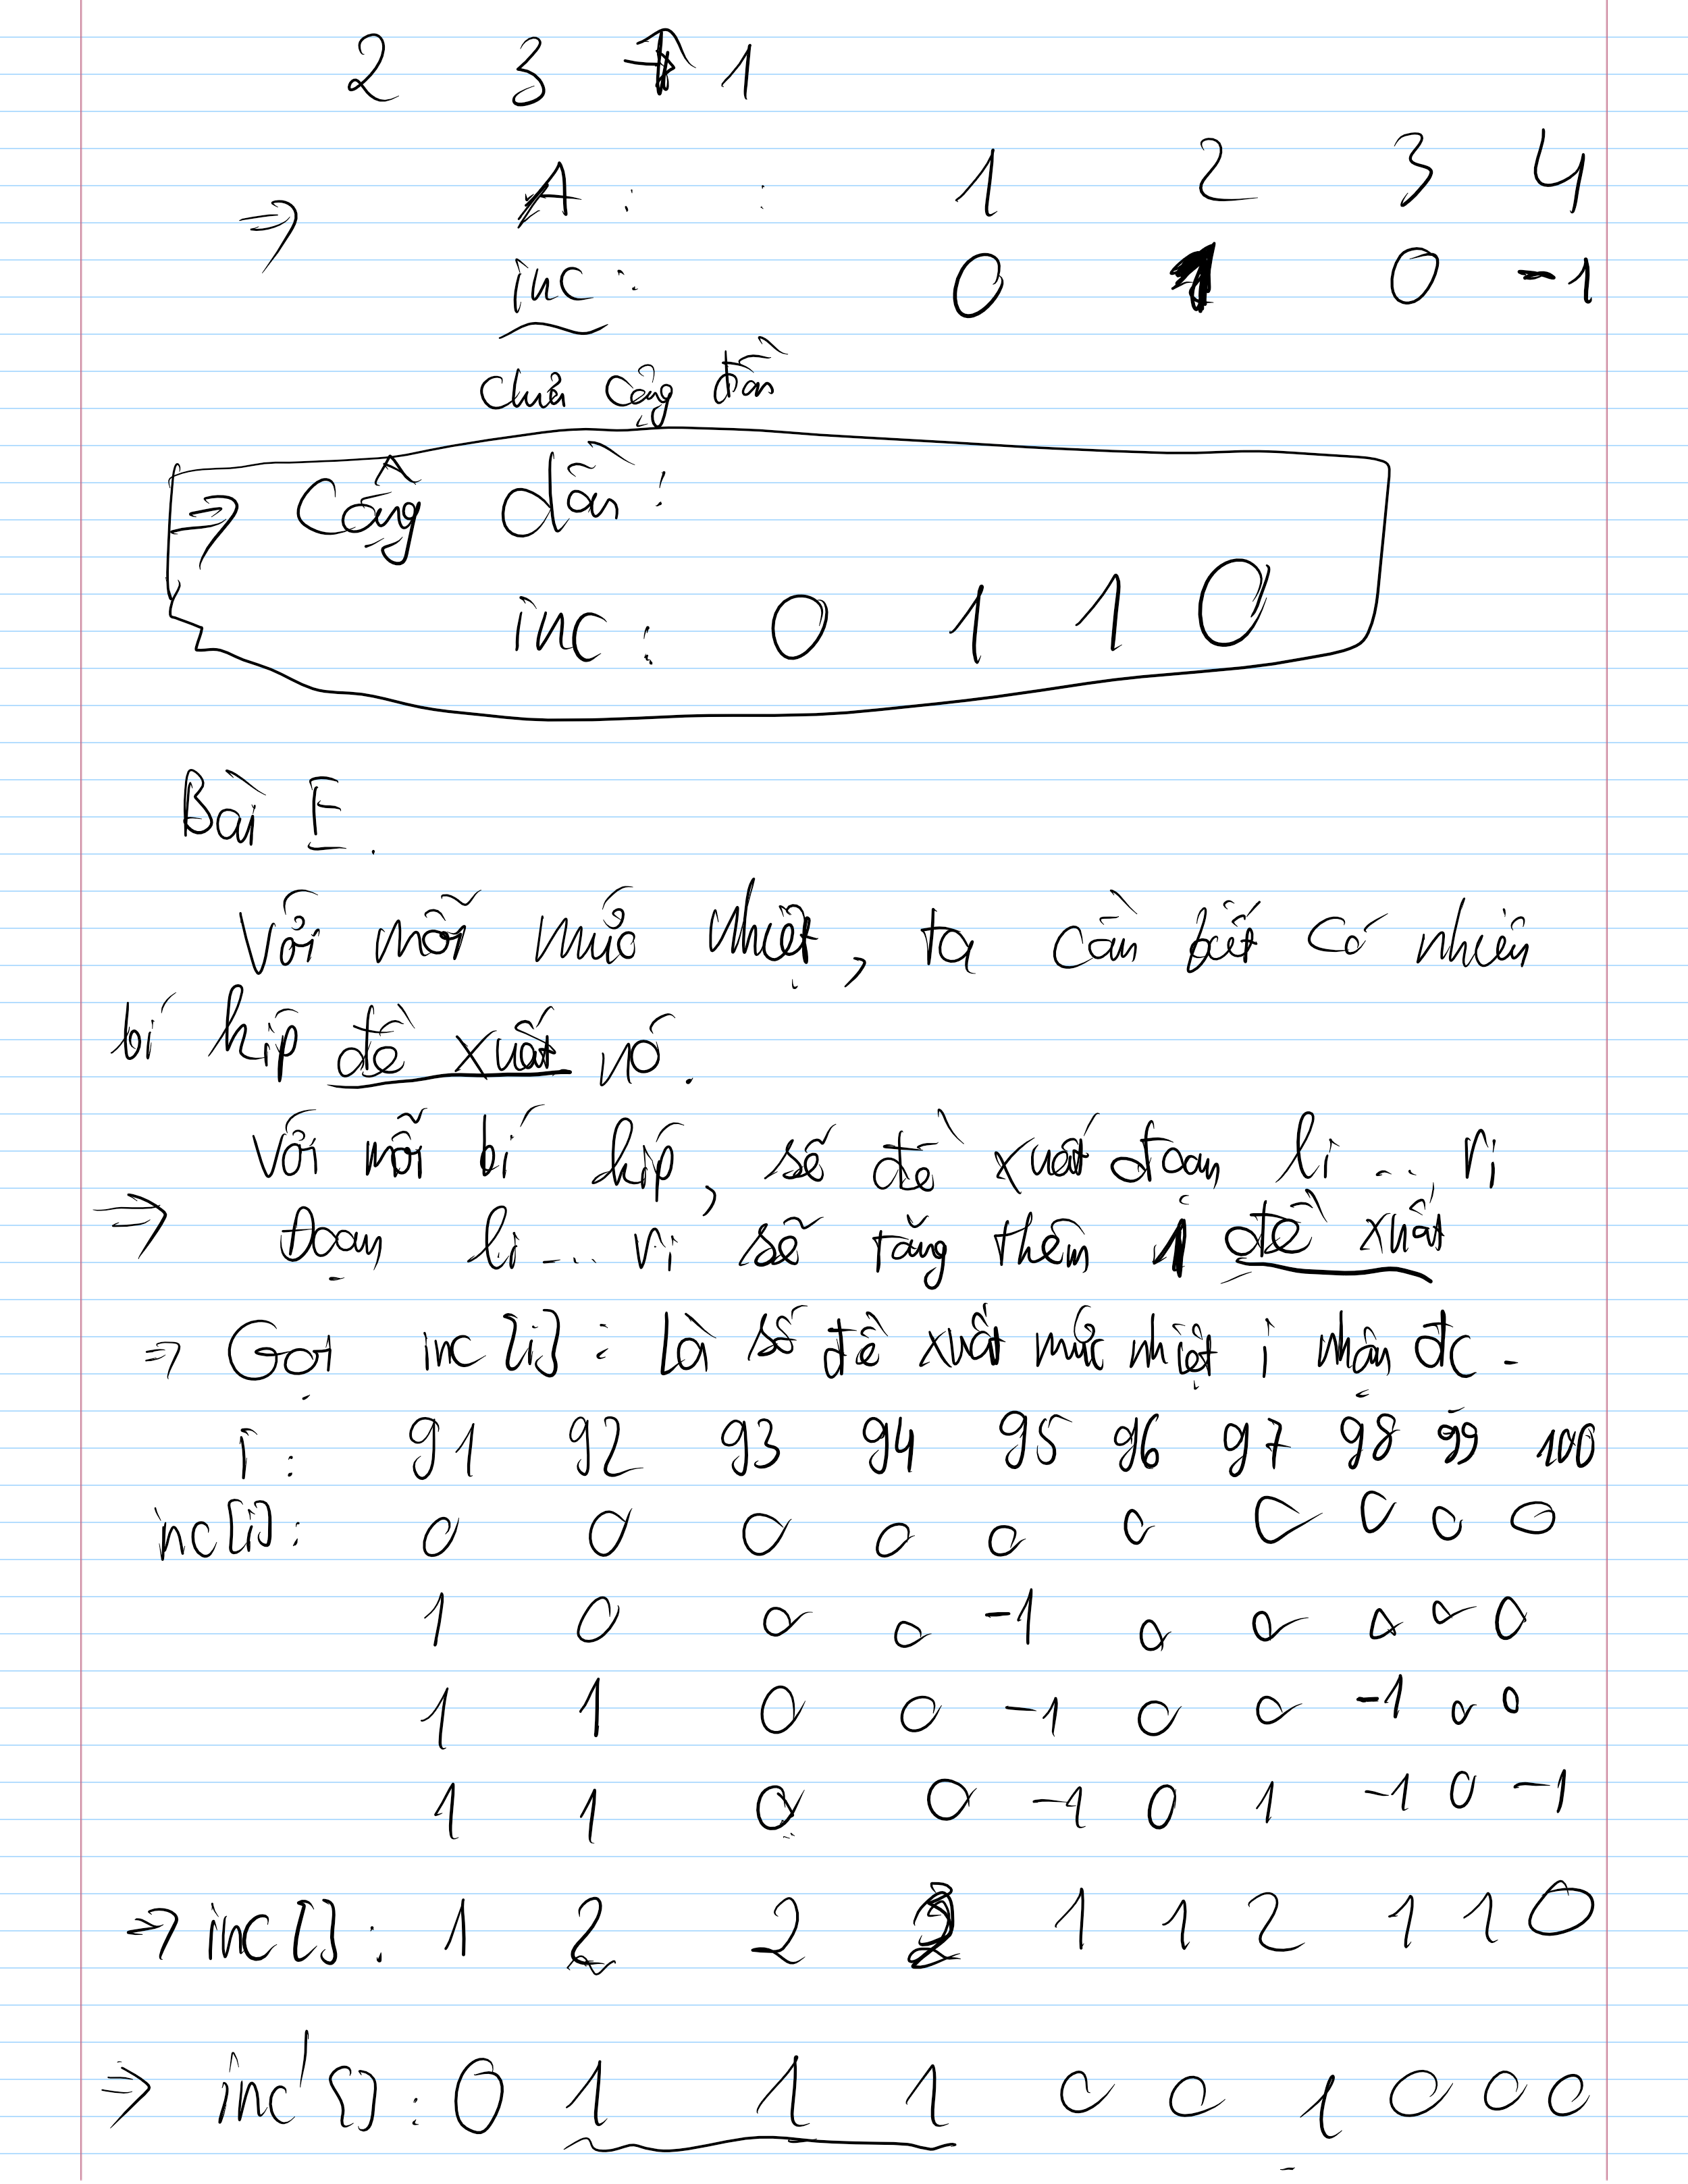 2 3 1
⇒ A : : 1 2 3 4
inc : 0 1 0 -1
chưa cộng dồn
⇒ Cộng dồn :
inc : 0 1 1 0
Bài E.
Với mỗi mức nhiệt, ta cần biết có nhiêu
bí kíp đề xuất nó.
Với mỗi bí kíp, sẽ đề xuất đoạn li ... ri
⇒ Đoạn li ... ri sẽ tăng thêm 1 đề xuất
⇒ Gọi inc[i] : là số đề xuất mức nhiệt i nhận đc.
i : 91 92 93 94 95 96 97 98 99 100
inc[i] : 0 0 0 0 0 0 0 0 0 0
1 0 0 0 -1 0 0 0 0 0
1 1 0 0 -1 0 0 -1 0 0
1 1 0 0 -1 0 1 -1 0 -1
⇒ inc[] : 1 2 2 2 1 1 2 1 1 0
⇒ inc'[] : 0 1 1 1 0 0 1 0 0 0